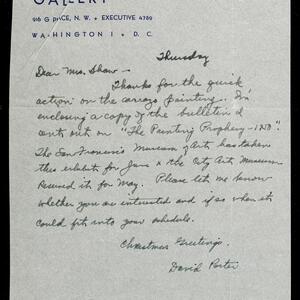 GALLERY
916 G PLACE, N. W. • EXECUTIVE 4789
WASHINGTON 1 • D. C.
Thursday
Dear Mrs. Shaw -
Thanks for the quick
action on the painting. I'm
enclosing a copy of the bulletin I
sent out on "The Painting Prophecy - 1950".
The San Francisco Museum of Arts has taken
this exhibit for June & the City Art Museum
reserved it for May. Please let me know
whether you are interested and if so when it
could fit into your schedule.
Christmas Greetings.
David Porter